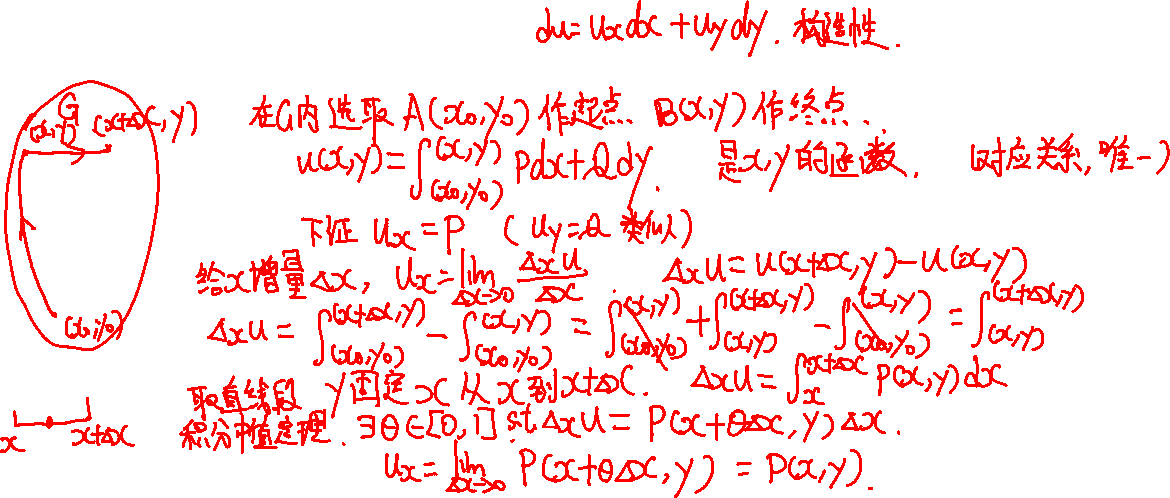 du=uxdx+uydy. 构造性.
G
(x,y) (x+Δx,y)
在G内选取A(x₀,y₀)作起点 B(x,y)作终点.
u(x,y)=∫_(x₀,y₀)^(x,y) Pdx+Qdy. 是x,y的函数. (对应关系,唯一)
下证 ux=P (uy=Q 类似)
给x增量Δx, ux=lim_{Δx→0} Δxu/Δx ΔxU=U(x+Δx,y)-U(x,y)
ΔxU=∫_(x₀,y₀)^(x+Δx,y) - ∫_(x₀,y₀)^(x,y) = ∫_(x₀,y₀)^(x,y) + ∫_(x,y)^(x+Δx,y) - ∫_(x₀,y₀)^(x,y) = ∫_(x,y)^(x+Δx,y)
(x₀,y₀)
取直线段 y固定 x从x到x+Δx. ΔxU=∫_x^{x+Δx} P(x,y)dx
x x+Δx
积分中值定理. ∃θ∈[0,1] st ΔxU=P(x+θΔx,y)Δx.
ux=lim_{Δx→0} P(x+θΔx,y)=P(x,y).